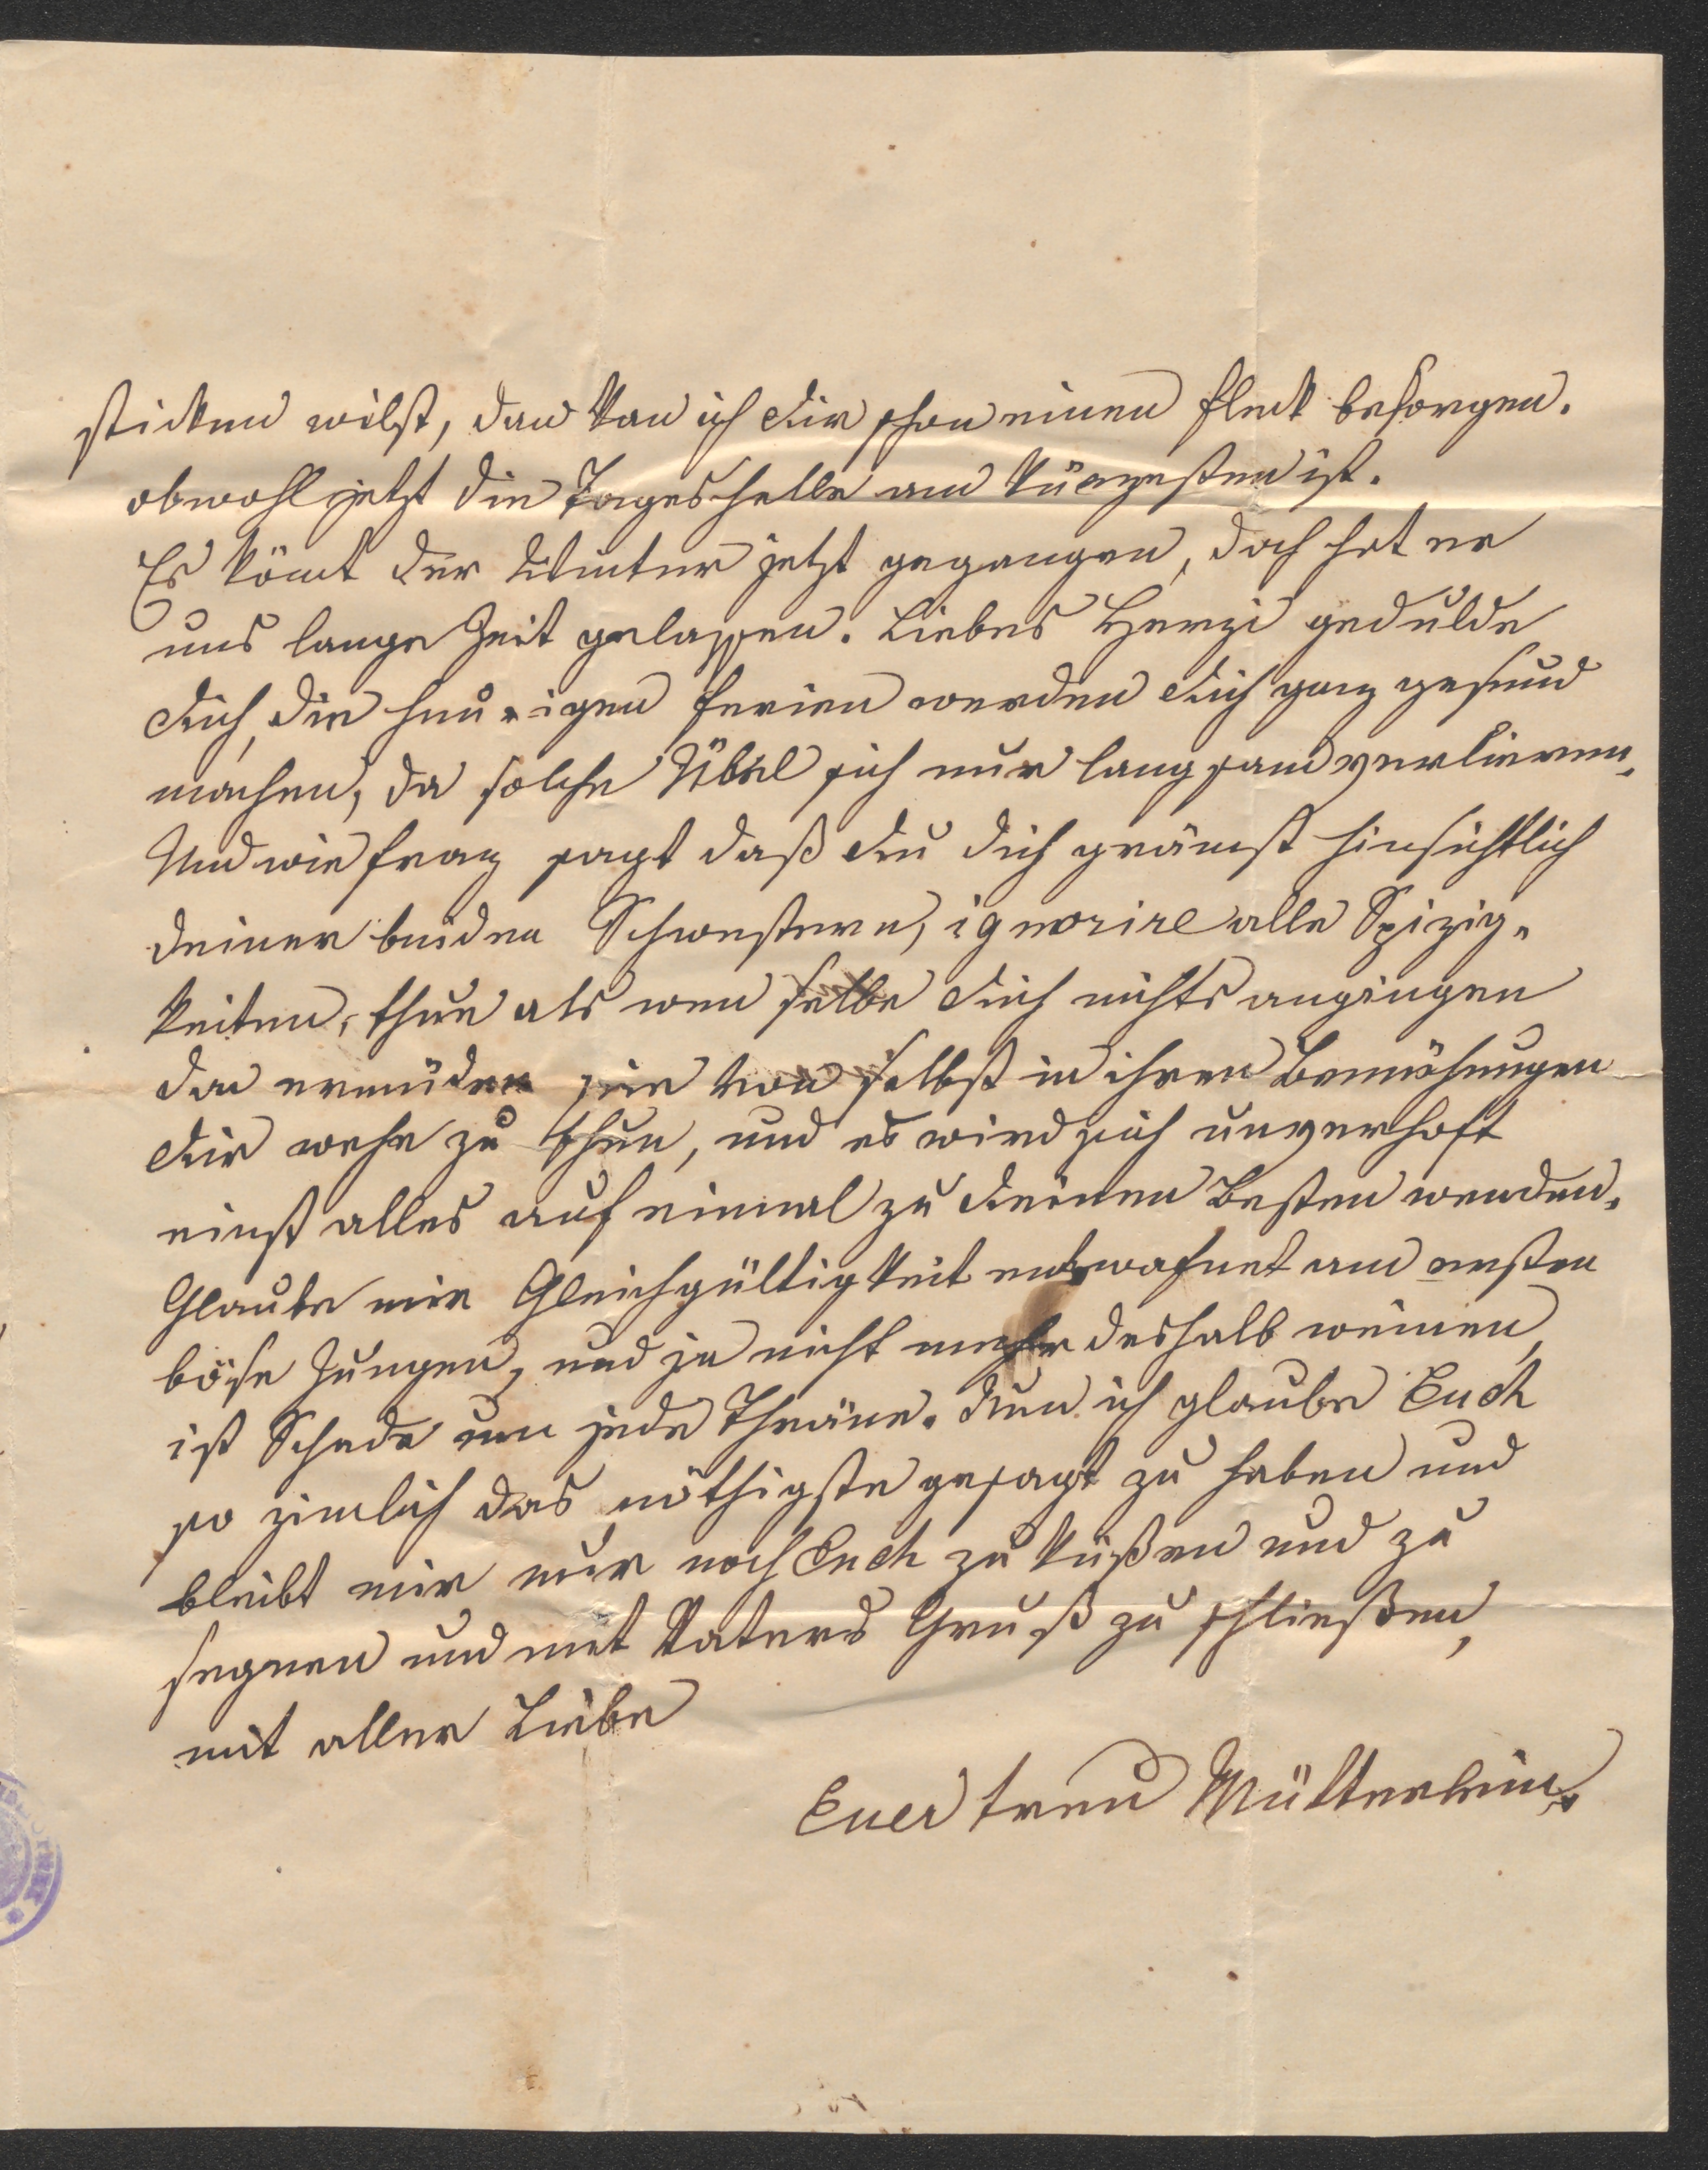 sticken wilst, dan kan ich Dir schon einen Fleck besorgen.
obwohl jetzt die Tageshelle am kürzesten ist.
Es kömt der Winter jetzt gegangen, doch hat er
uns lange Zeit gelassen. Liebes Herzi gedulde
Dich, die heurigen Ferien werden Dich ganz gesund
machen, da solche Übel sich nur langsam verlieren.
Und wie Franz sagt daß Du Dich grämst hinsichtlich
deiner beiden Schwestern, ignorire alle Spizig-
keiten, thue als wen selbe Dich nichts angingen
dan ermüden sie von selbst in ihren Bemühungen
Dir wehe zu thun, und es wird sich unverhoft
einst alles auf einmal zu Deinen Besten wenden.
Glaube mir Gleichgültigkeit entwafnet am ersten
böse Zungen, und ja nicht mehr deshalb weinen,
ist Schade um jede Thräne. Nun ich glaube Euch
so zimlich das nöthigste gesagt zu haben und
bleibt mir nur noch Euch zu küßen und zu
segnen und mit Vaters Gruß zu schließen,
mit aller Liebe
Euer treu Mütterlein.